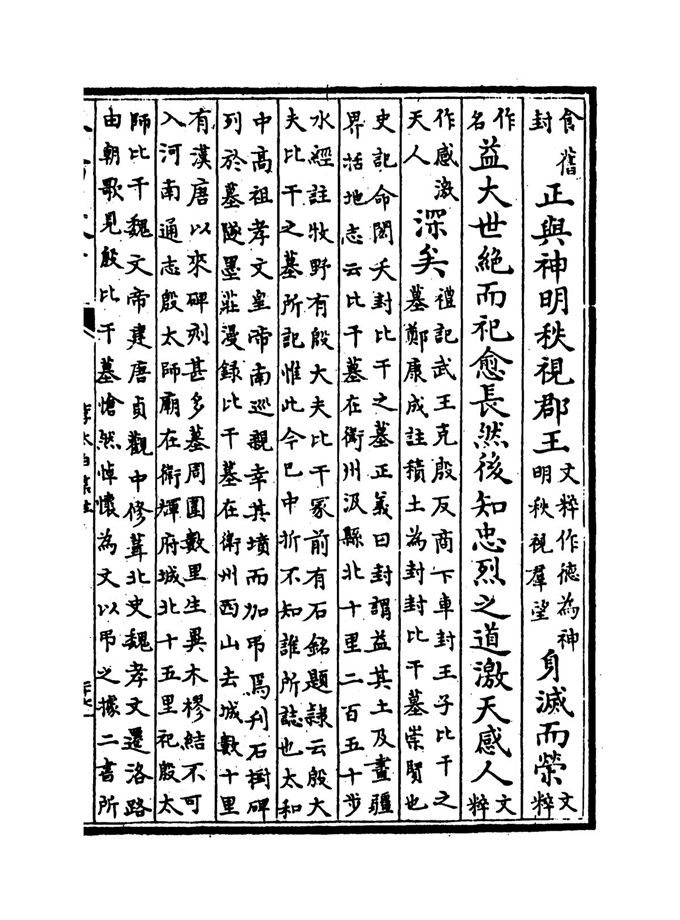 食舊
封
正與神明秩視郡王
文粹作德為神
明秩視羣望
身滅而榮
文
粹
作
名
益大世絶而祀愈長然後知忠烈之道激天感人
文
粹
作感激
天人
深矣
禮記武王克殷反商下車封王子比干之
墓鄭康成註積土為封封比干墓崇賢也
史記命閎夭封比干之墓正義曰封謂益其土及畫疆
界括地志云比干墓在衛州汲縣北十里二百五十步
水經註牧野有殷大夫比干冢前有石銘題隸云殷大
夫比干之墓所記惟此今已中折不知誰所誌也太和
中高祖孝文皇帝南巡親幸其墳而加弔焉刋石樹碑
列於墓隧墨莊漫録比干墓在衛州西山去城數十里
有漢唐以來碑刻甚多墓周圍數里生異木樛結不可
入河南通志殷太師廟在衛輝府城北十五里祀殷太
師比干魏文帝建唐貞觀中修葺北史魏孝文遷洛路
由朝歌見殷比干墓愴然悼懷為文以弔之據二書所